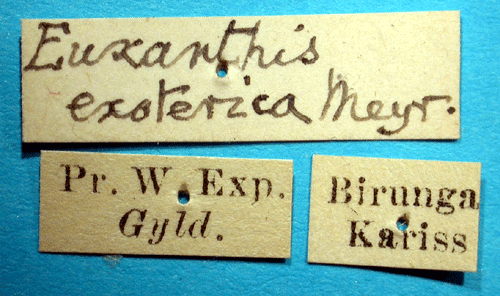 Euxanthis
exoterica Meyr.
Pr. W. Exp.
Gyld.
Birunga
Kariss